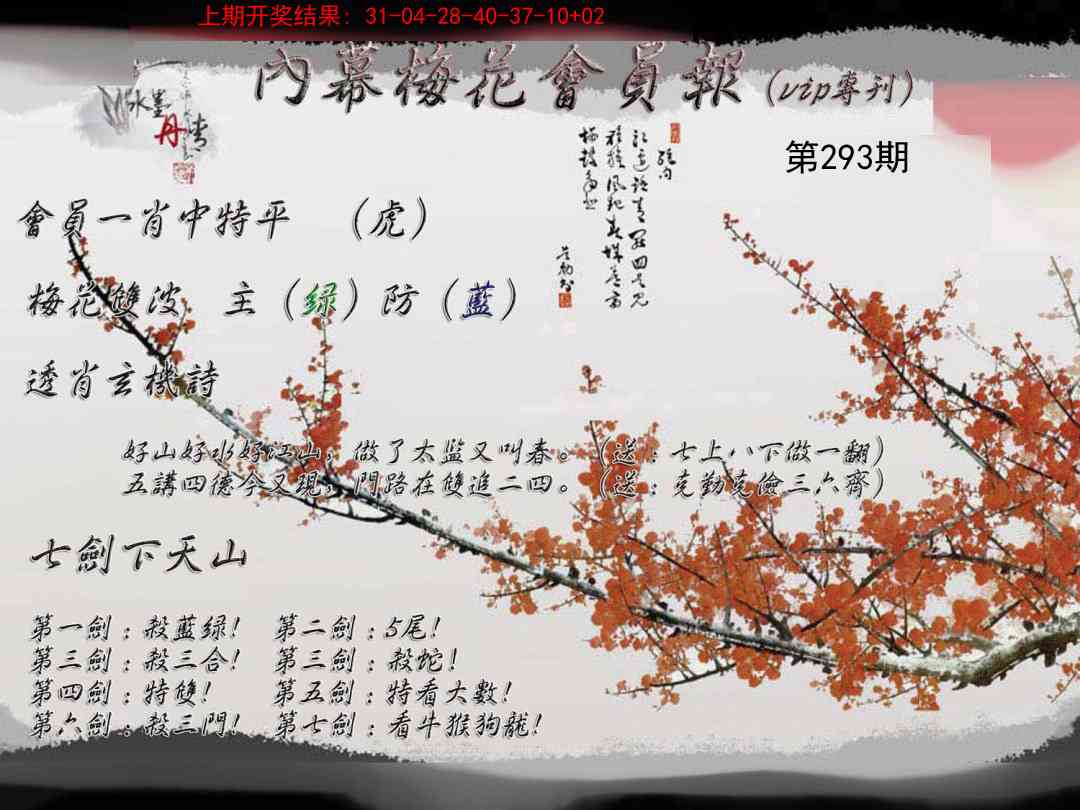 上期开奖结果: 31-04-28-40-37-10+02
內幕梅花會員報(vip專刊)
水墨
丹青
第293期
會員一肖中特平 (虎)
梅花雙波 主(绿)防(藍)
透肖玄機詩
好山好水好江山,做了太监又叫春。(送:七上八下做一翻)
五講四德今又現,門路在雙追二四。(送:克勤克儉三六齊)
七劍下天山
第一劍:殺藍绿! 第二劍:5尾!
第三劍:殺三合! 第三劍:殺蛇!
第四劍:特雙! 第五劍:特看大數!
第六劍:殺三門! 第七劍:看牛猴狗龍!